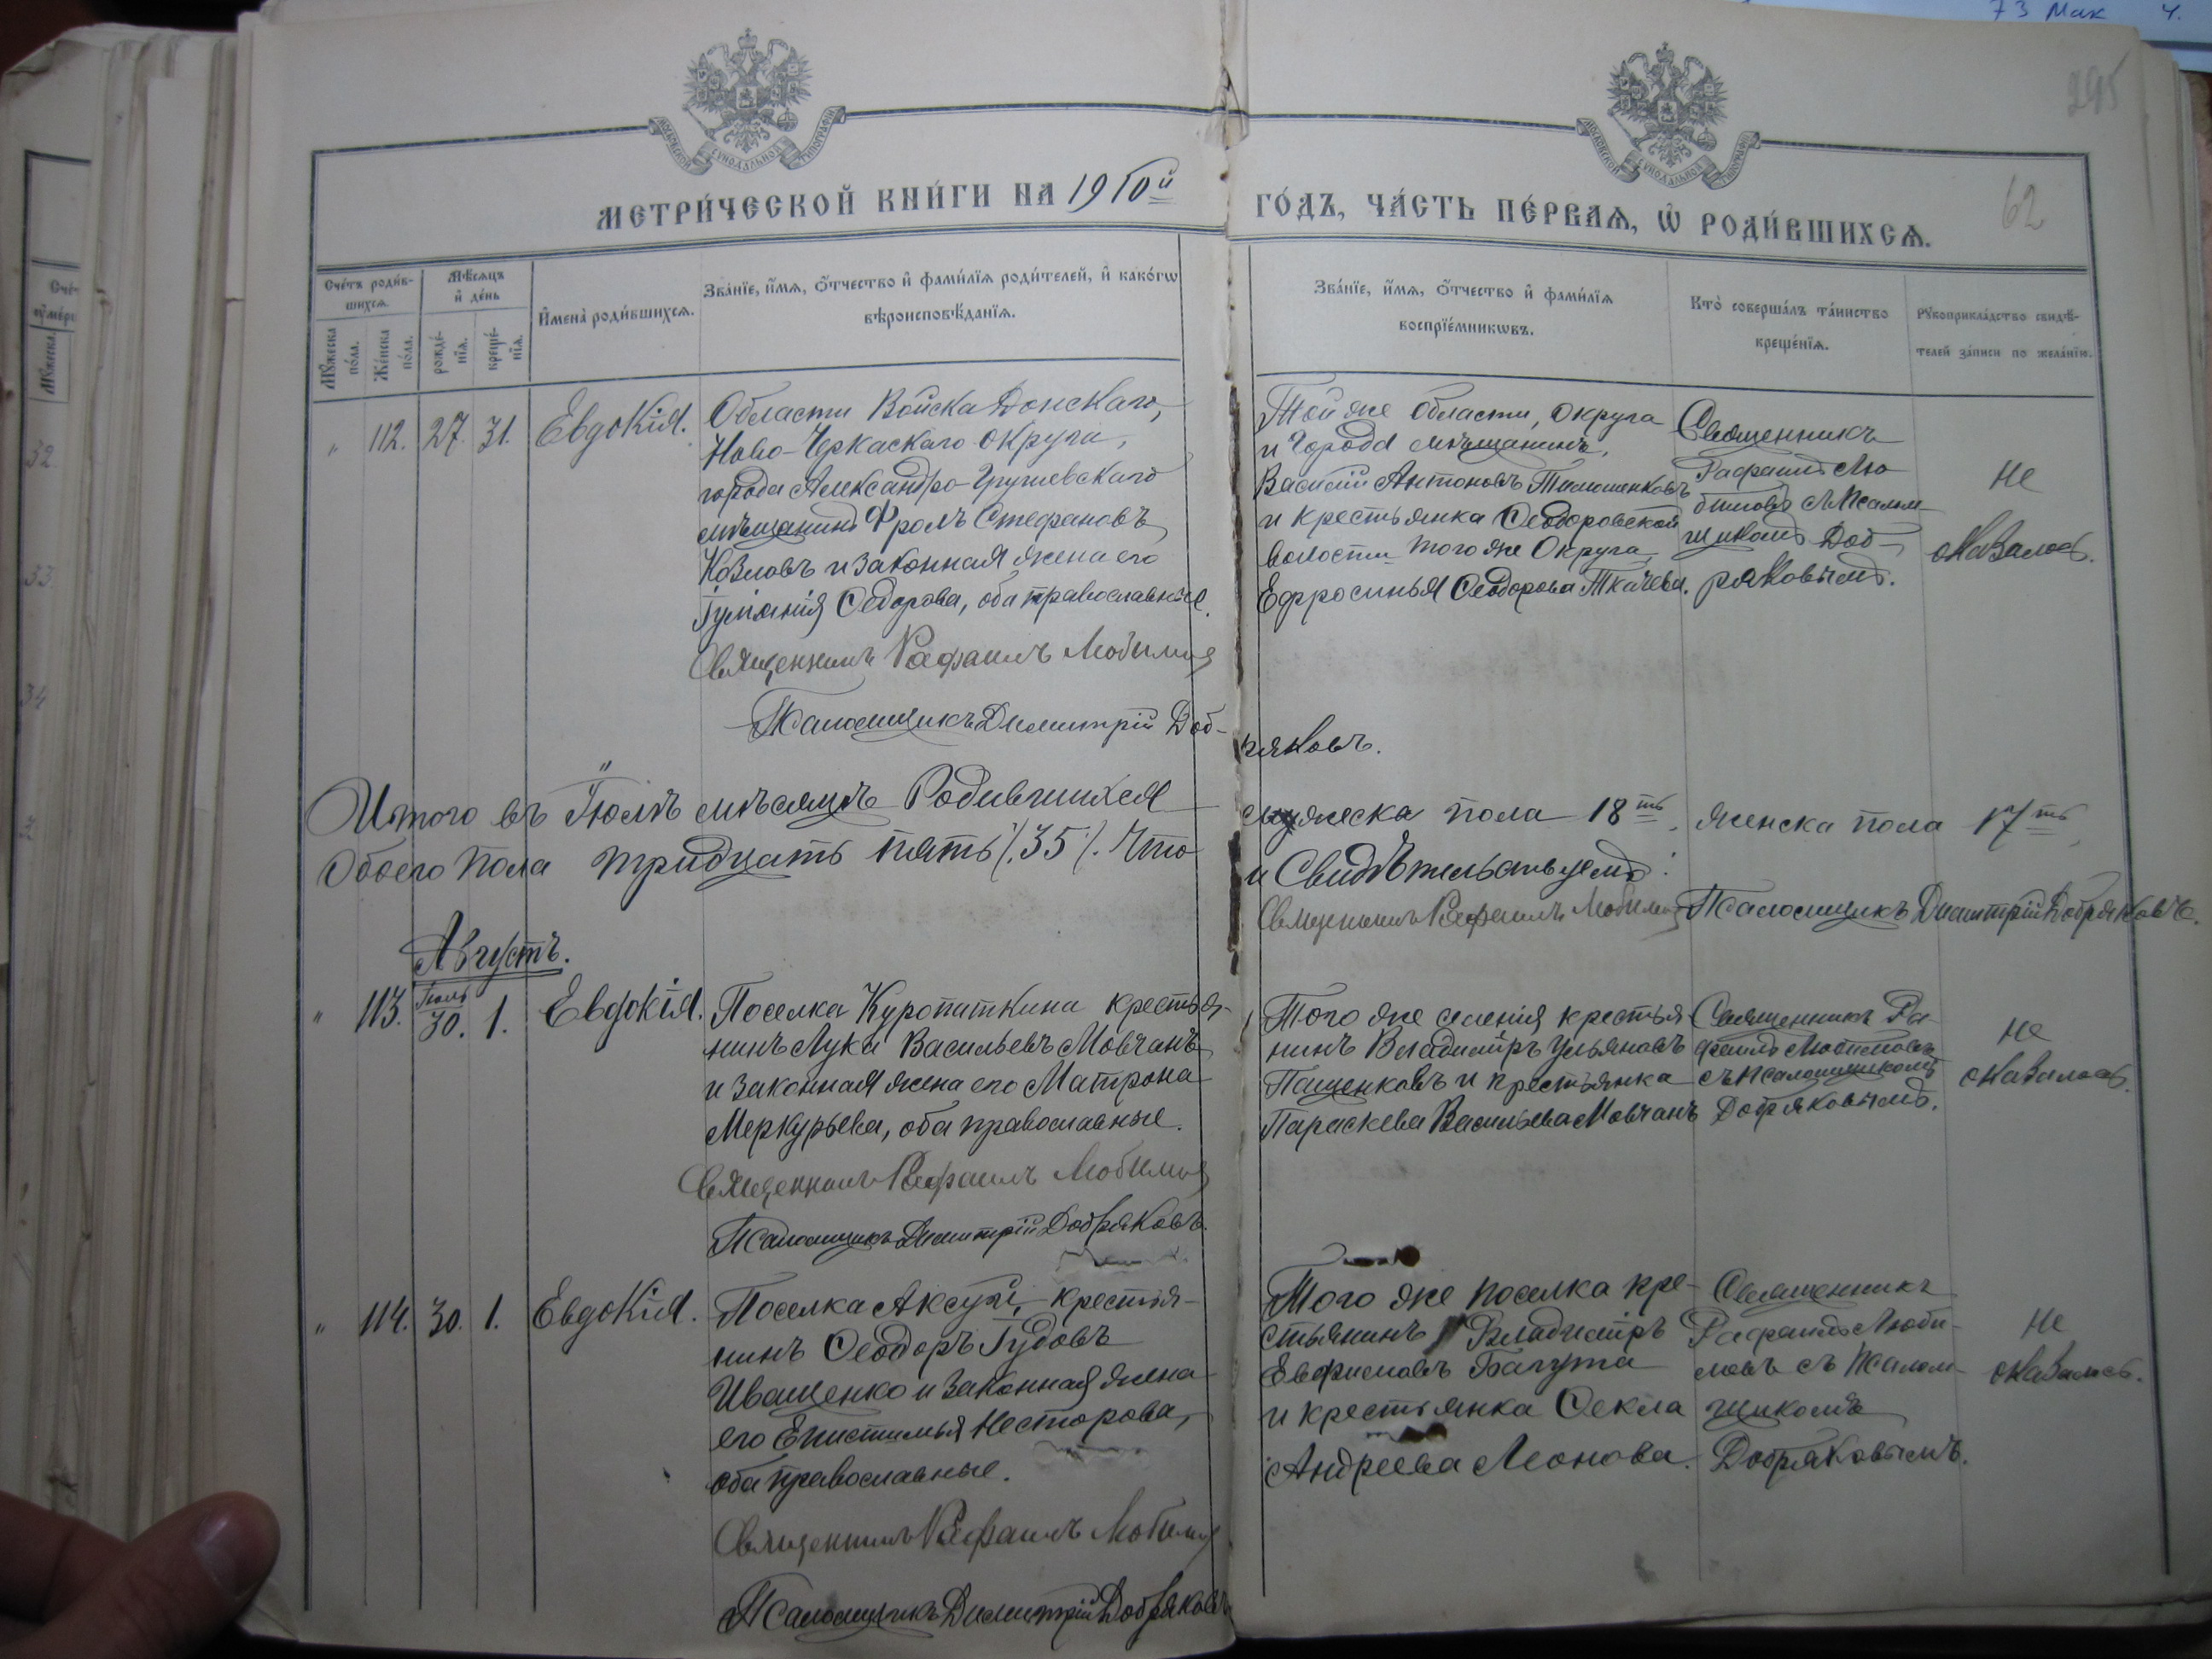 73 Мак 4.
295
62
МОСКОВСКОЙ СѴНОДАЛЬНОЙ ТИПОГРАФІИ
МОСКОВСКОЙ СѴНОДАЛЬНОЙ ТИПОГРАФІИ
МЕТРИ́ЧЕСКОЙ КНИ́ГИ НА 1910й ГО́ДЪ, ЧА́СТЬ ПЕ́РВАѦ, Ѽ РОДИ́ВШИХСѦ.
Сче́тъ роди́в-
шихсѧ.
Мꙋ́жеска по́ла.
Же́нска по́ла.
Мѣ́сѧцъ
и҆ де́нь
рожде́-
нїѧ.
креще́-
нїѧ.
И҆мена̀ роди́вшихсѧ.
Зва́нїе, и҆́мѧ, ѻ҆́тчество и҆ фами́лїѧ роди́телей, и҆ како́гѡ
вѣроисповѣ́данїѧ.
Зва́нїе, и҆́мѧ, ѻ҆́тчество и҆ фами́лїѧ
воспрїе́мникѡвъ.
Кто̀ соверша́лъ та́инство
креще́нїѧ.
Рꙋкоприкла́дство свидѣ́-
телей за́писи по жела́нїю.
" 112. 27. 31. Евдокія.
Области Войска Донскаго,
Ново-Черкаскаго округа,
города Александро-Грушевскаго
мѣщанинъ Фролъ Стефановъ
Козловъ и законная жена его
Іуліанія Ѳедорова, оба православные.
Священникъ Рафаилъ Любимов
Псаломщикъ Димитрій Доб-
ряковъ.
Той же области, округа
и города мѣщанинъ,
Василій Антоновъ Тимошенковъ
и крестьянка Ѳеодоровской
волости того же Округа,
Ефросинья Ѳеодорова Ткачева.
Священникъ
Рафаилъ Лю-
бимовъ съ Псалом-
щикомъ Доб-
ряковымъ.
Не
оказалось.
Итого въ Іюлѣ мѣсяцѣ Родившихся мужеска пола 18ть, женска пола 17ть,
Обоего пола тридцать пять /.35/. Что и Свидѣтельствуемъ:
Священникъ Рафаилъ Любимов Псаломщикъ Димитрій Добряковъ.
Августъ.
" 113. Іюль 30. 1. Евдокія.
Поселка Куропаткина крестья-
нинъ Лука Васильевъ Мовчанъ
и законная жена его Матрона
Меркурьева, оба православные.
Священникъ Рафаилъ Любимов
Псаломщикъ Димитрій Добряковъ.
Того же селенія крестья-
нинъ Владиміръ Ульяновъ
Пащенковъ и крестьянка
Параскева Васильева Мовчанъ
Священникъ Ра-
фаилъ Любимовъ
съ Псаломщикомъ
Добряковымъ.
Не
оказалось.
" 114. 30. 1. Евдокія.
Поселка Аксай, крестья-
нинъ Ѳеодоръ
Иващенко и законная жена
его Епистимья Несторова,
оба православные.
Священникъ Рафаилъ Любимов
Псаломщикъ Димитрій Добряковъ
Того же поселка кре-
стьянинъ Владиміръ
Евфимовъ
и крестьянка Ѳекла
Андреева Леонова.
Священникъ
Рафаилъ Люби-
мовъ съ Псалом-
щикомъ
Добряковымъ.
Не
оказалось.